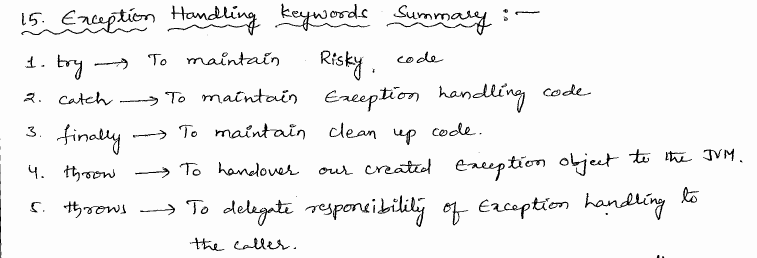 15. Exception Handling keywords Summary :-
1. try → To maintain Risky, code
2. catch → To maintain Exception handling code
3. finally → To maintain clean up code.
4. throw → To handover our created exception object to the JVM.
5. throws → To delegate responsibility of Exception handling to
the caller.